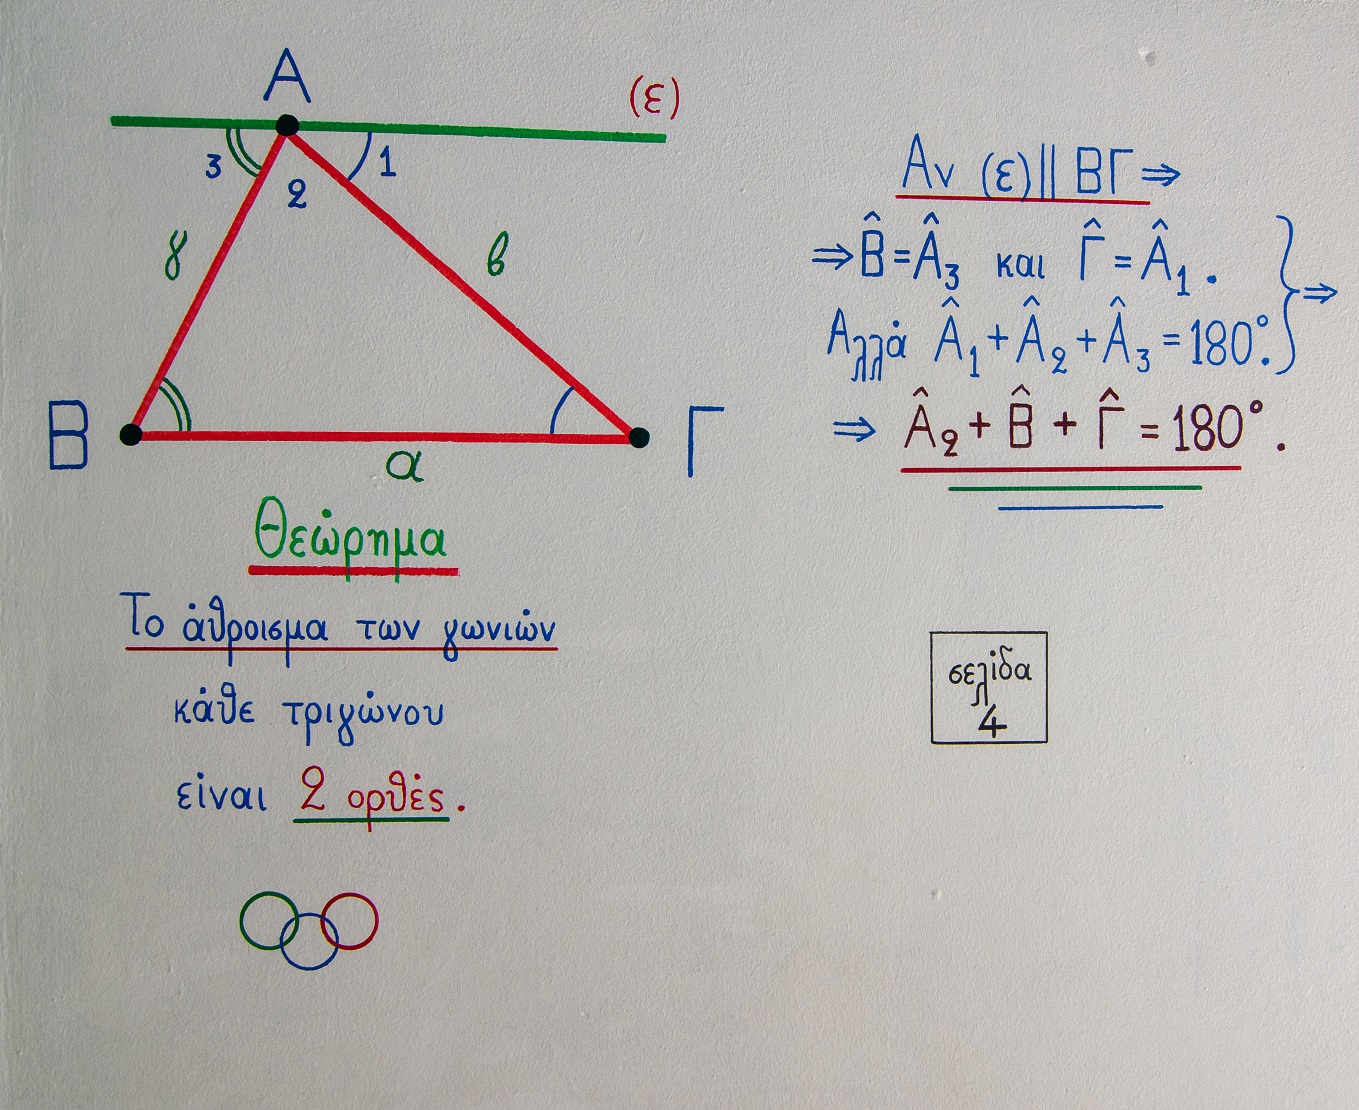 Α
(ε)
3
2
1
γ
β
Β
Γ
α
Θεώρημα
Το άθροισμα των γωνιών
κάθε τριγώνου
είναι 2 ορθές.
Αν (ε)||ΒΓ⇒
⇒B̂=Â₃ και Γ̂=Â₁.
Αλλά Â₁+Â₂+Â₃=180°. } ⇒
⇒ Â₂+B̂+Γ̂=180°.
σελίδα
4